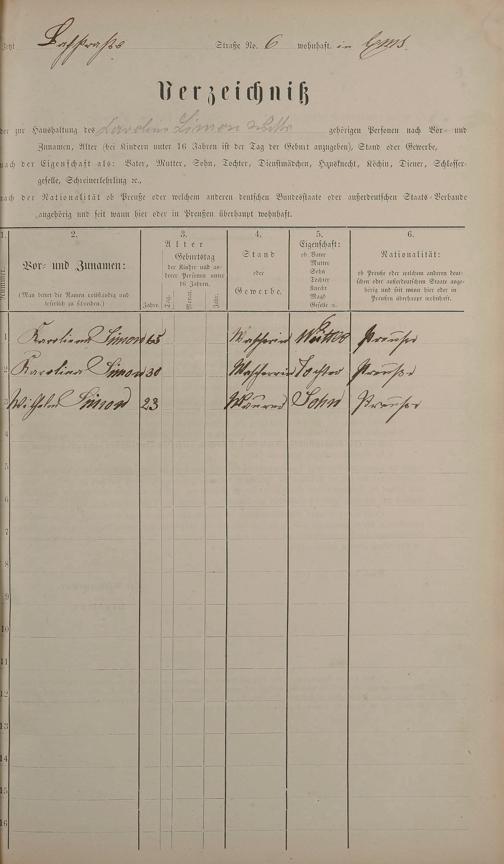 Straße No. 6 wohnhaft. in Ems
Verzeichniß
der zur Haushaltung des Karoline Simon Wttw gehörigen Personen nach Vor- und
Zunamen, Alter (bei Kindern unter 16 Jahren ist der Tag der Geburt anzugeben), Stand oder Gewerbe,
nach der Eigenschaft als: Vater, Mutter, Sohn, Tochter, Dienstmädchen, Hausknecht, Köchin, Diener, Schlosser-
geselle, Schreinerlehrling ꝛc.,
nach der Nationalität ob Preuße oder welchem anderen deutschen Bundesstaate oder außerdeutschen Staats-Verbande
angehörig und seit wann hier oder in Preußen überhaupt wohnhaft.
1. 2. 3. 4. 5. 6.
Nummer.
Vor- und Zunamen:
(Man bittet die Namen vollständig und
leserlich zu schreiben.)
Alter
Geburtstag
der Kinder und an-
derer Personen unter
16 Jahren.
Jahre. Tag. Monat. Jahr.
Stand
oder
Gewerbe.
Eigenschaft:
ob Vater
Mutter
Sohn
Tochter
Knecht
Magd
Geselle u.
Nationalität:
ob Preuße oder welchem anderen deut-
schen oder außerdeutschen Staate ange-
hörig und seit wann hier oder in
Preußen überhaupt wohnhaft.
1 Karolina Simon 65 Wascherin Mutter Preuße
2 Karolina Simon 30 Wascherin Tochter Preuße
3 Wilhelm Simon 23 Maurer Sohn Preuße
4
5
6
7
8
9
10
11
12
13
14
15
16